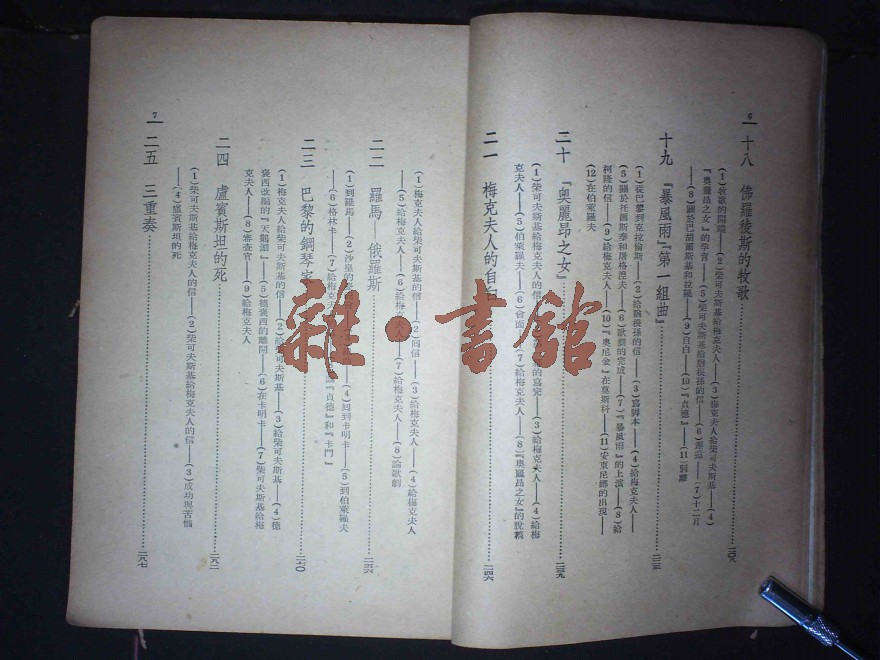 6
十八 佛羅稜斯的牧歌……二〇八
(1)牧歌的開端——(2)柴可夫斯基給梅克夫人——(3)梅克夫人給柴可夫斯基——(4)
『奧麗昂之女』的準言——(5)柴可夫斯基給
十九 『暴風雨』『第一組曲』
(1)從巴黎到克拉倫斯——(3)寫脚本——(4)給梅克夫人——
(5)關於托爾斯泰和屠格湼夫——(6)歌劇的完成——(7)『暴風雨』的上演——(8)給
柯隆的信——(9)給梅克夫人——(10)『奧尼金』在莫斯科——(11)安東尼娜的出現——
(12)在伯萊羅夫
二十 『奧麗昂之女』……二三九
(1)柴可夫斯基給梅克夫人的信——(3)給梅克夫人——(4)給梅
克夫人——(5)伯萊羅夫——(6)會面——(7)給梅克夫人——(8)『奧麗昂之女』的脫稿
二一 梅克夫人的自 二四六
7
(1)梅克夫人給柴可夫斯基的信——(2)回信——(3)給梅克夫人——(4)給梅克夫人
——(5)給梅克夫人——(6)給梅克夫人——(7)給梅克夫人——(8)論歌劇
二二 羅馬——俄羅斯
(1)到羅馬——(2)沙皇的 (4)回到卡明卡——(5)到伯萊羅夫
——(6)格林卡——(7)給梅克夫人 『貞德』和『卡門』
二三 巴黎的鋼琴家
(1)梅克夫人給柴可夫斯基的信——(2)給柴可夫斯基——(3)給柴可夫斯基——(4)德
褒西改編的『天鵝湖』——(5)德褒西的離開——(6)在卡明卡——(7)柴可夫斯基給梅
克夫人——(8)審查官——(9)給梅克夫人
二四 盧賓斯坦的死……二八二
(1)柴可夫斯基給梅克夫人的信——(2)柴可夫斯基給梅克夫人的信——(3)成功與苦惱
——(4)盧賓斯坦的死
二五 三重奏……二八七
雜·書館